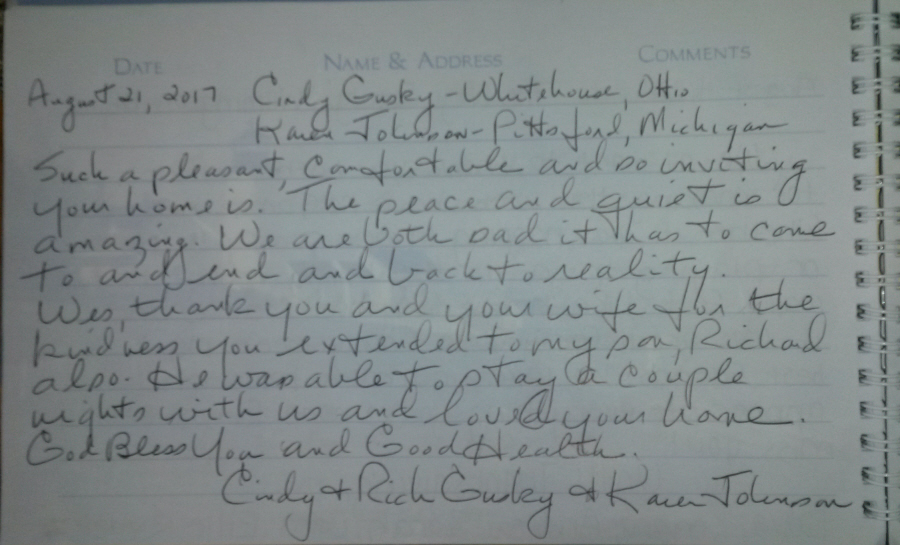 DATE NAME & ADDRESS COMMENTS
August 21, 2017 Cindy Gusky - Whitehouse, OHio
Karen Johnson - Pittsford, Michigan
Such a pleasant, comfortable and so inviting
your home is. The peace and quiet is
amazing. We are both sad it has to come
to and end and back to reality.
Wes, thank you and your wife for the
kindness you extended to my son, Richard
also. He was able to stay a couple
nights with us and loved your home.
God Bless You and Good Health.
Cindy & Rich Gusky & Karen Johnson